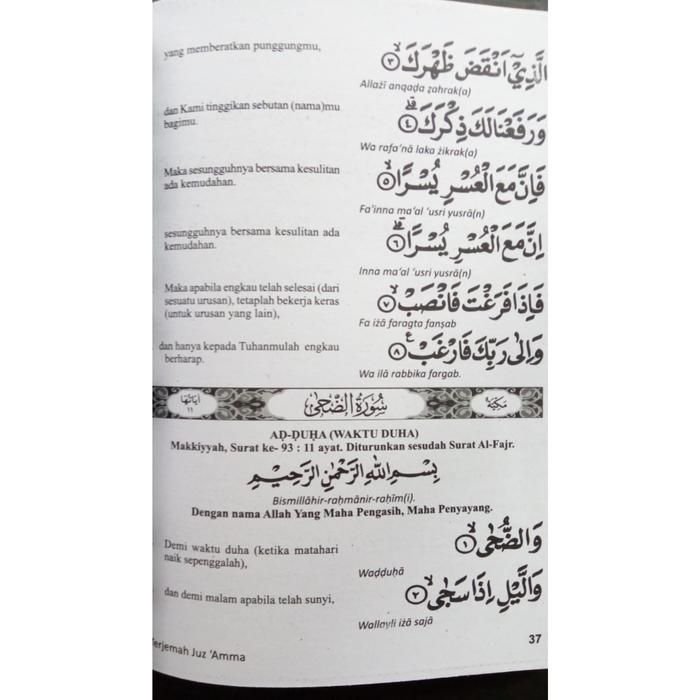 yang memberatkan punggungmu,
الَّذِيْٓ اَنْقَضَ ظَهْرَكَۙ ﴿٣﴾
Allażī anqaḍa ẓahrak(a)
dan Kami tinggikan sebutan (nama)mu
bagimu.
وَرَفَعْنَا لَكَ ذِكْرَكَۗ ﴿٤﴾
Wa rafa'nā laka żikrak(a)
Maka sesungguhnya bersama kesulitan
ada kemudahan.
فَاِنَّ مَعَ الْعُسْرِ يُسْرًاۙ ﴿٥﴾
Fa'inna ma'al 'usri yusrā(n)
sesungguhnya bersama kesulitan ada
kemudahan.
اِنَّ مَعَ الْعُسْرِ يُسْرًاۗ ﴿٦﴾
Inna ma'al 'usri yusrā(n)
Maka apabila engkau telah selesai (dari
sesuatu urusan), tetaplah bekerja keras
(untuk urusan yang lain),
فَاِذَا فَرَغْتَ فَانْصَبْۙ ﴿٧﴾
Fa iżā faragta fanṣab
dan hanya kepada Tuhanmulah engkau
berharap.
وَاِلٰى رَبِّكَ فَارْغَبْ ࣖ ﴿٨﴾
Wa ilā rabbika fargab.
مَكِّيَّة
سُوْرَةُ الضُّحٰى
اٰيَاتُهَا
١١
AḌ-ḌUḤA (WAKTU DUHA)
Makkiyyah, Surat ke- 93 : 11 ayat. Diturunkan sesudah Surat Al-Fajr.
بِسْمِ اللّٰهِ الرَّحْمٰنِ الرَّحِيْمِ
Bismillāhir-raḥmānir-raḥīm(i).
Dengan nama Allah Yang Maha Pengasih, Maha Penyayang.
Demi waktu duha (ketika matahari
naik sepenggalah),
وَالضُّحٰىۙ ﴿١﴾
Waḍḍuḥā
dan demi malam apabila telah sunyi,
وَالَّيْلِ اِذَا سَجٰىۙ ﴿٢﴾
Wallayli iżā sajā
Terjemah Juz 'Amma
37